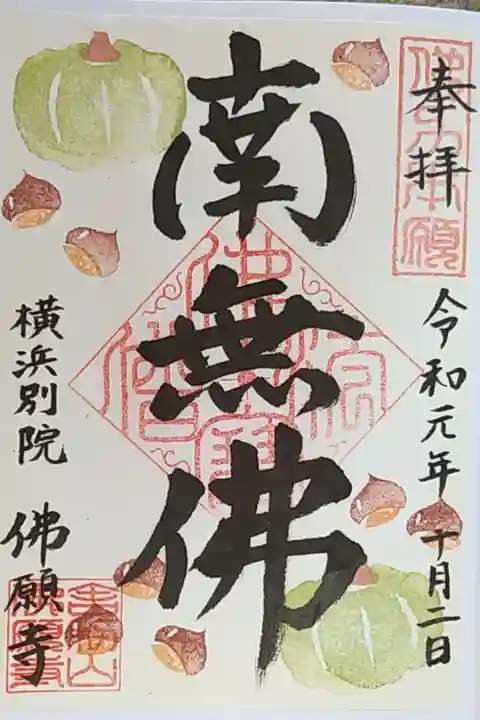 奉拝
令和元年 十月二日
南無佛
横浜別院 佛願寺